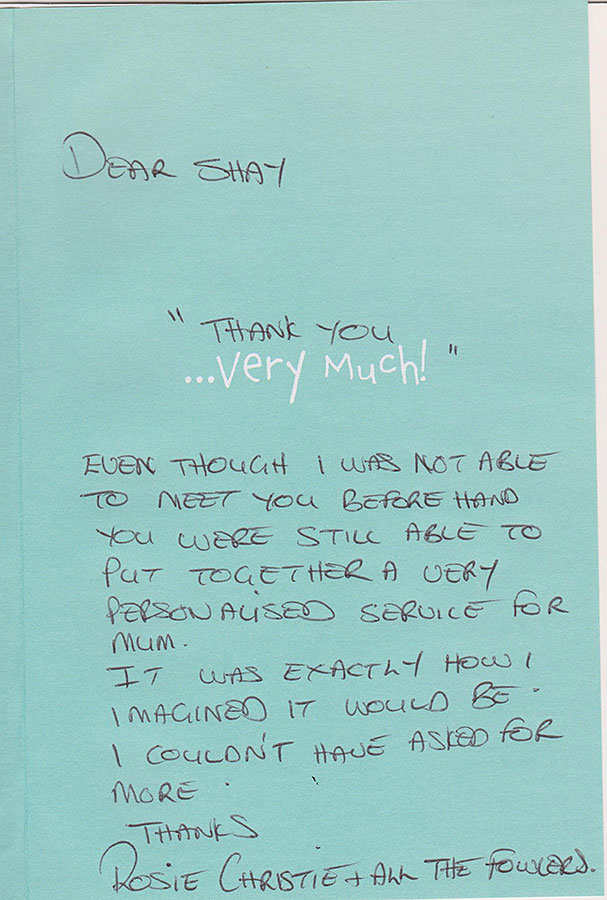 DEAR SHAY
" THANK YOU
...very Much! "
EVEN THOUGH I WAS NOT ABLE
TO MEET YOU BEFORE HAND
YOU WERE STILL ABLE TO
PUT TOGETHER A VERY
PERSONALISED SERVICE FOR
MUM.
IT WAS EXACTLY HOW I
IMAGINED IT WOULD BE.
I COULDN'T HAVE ASKED FOR
MORE.
THANKS
ROSIE CHRISTIE + ALL THE FOWLERS.